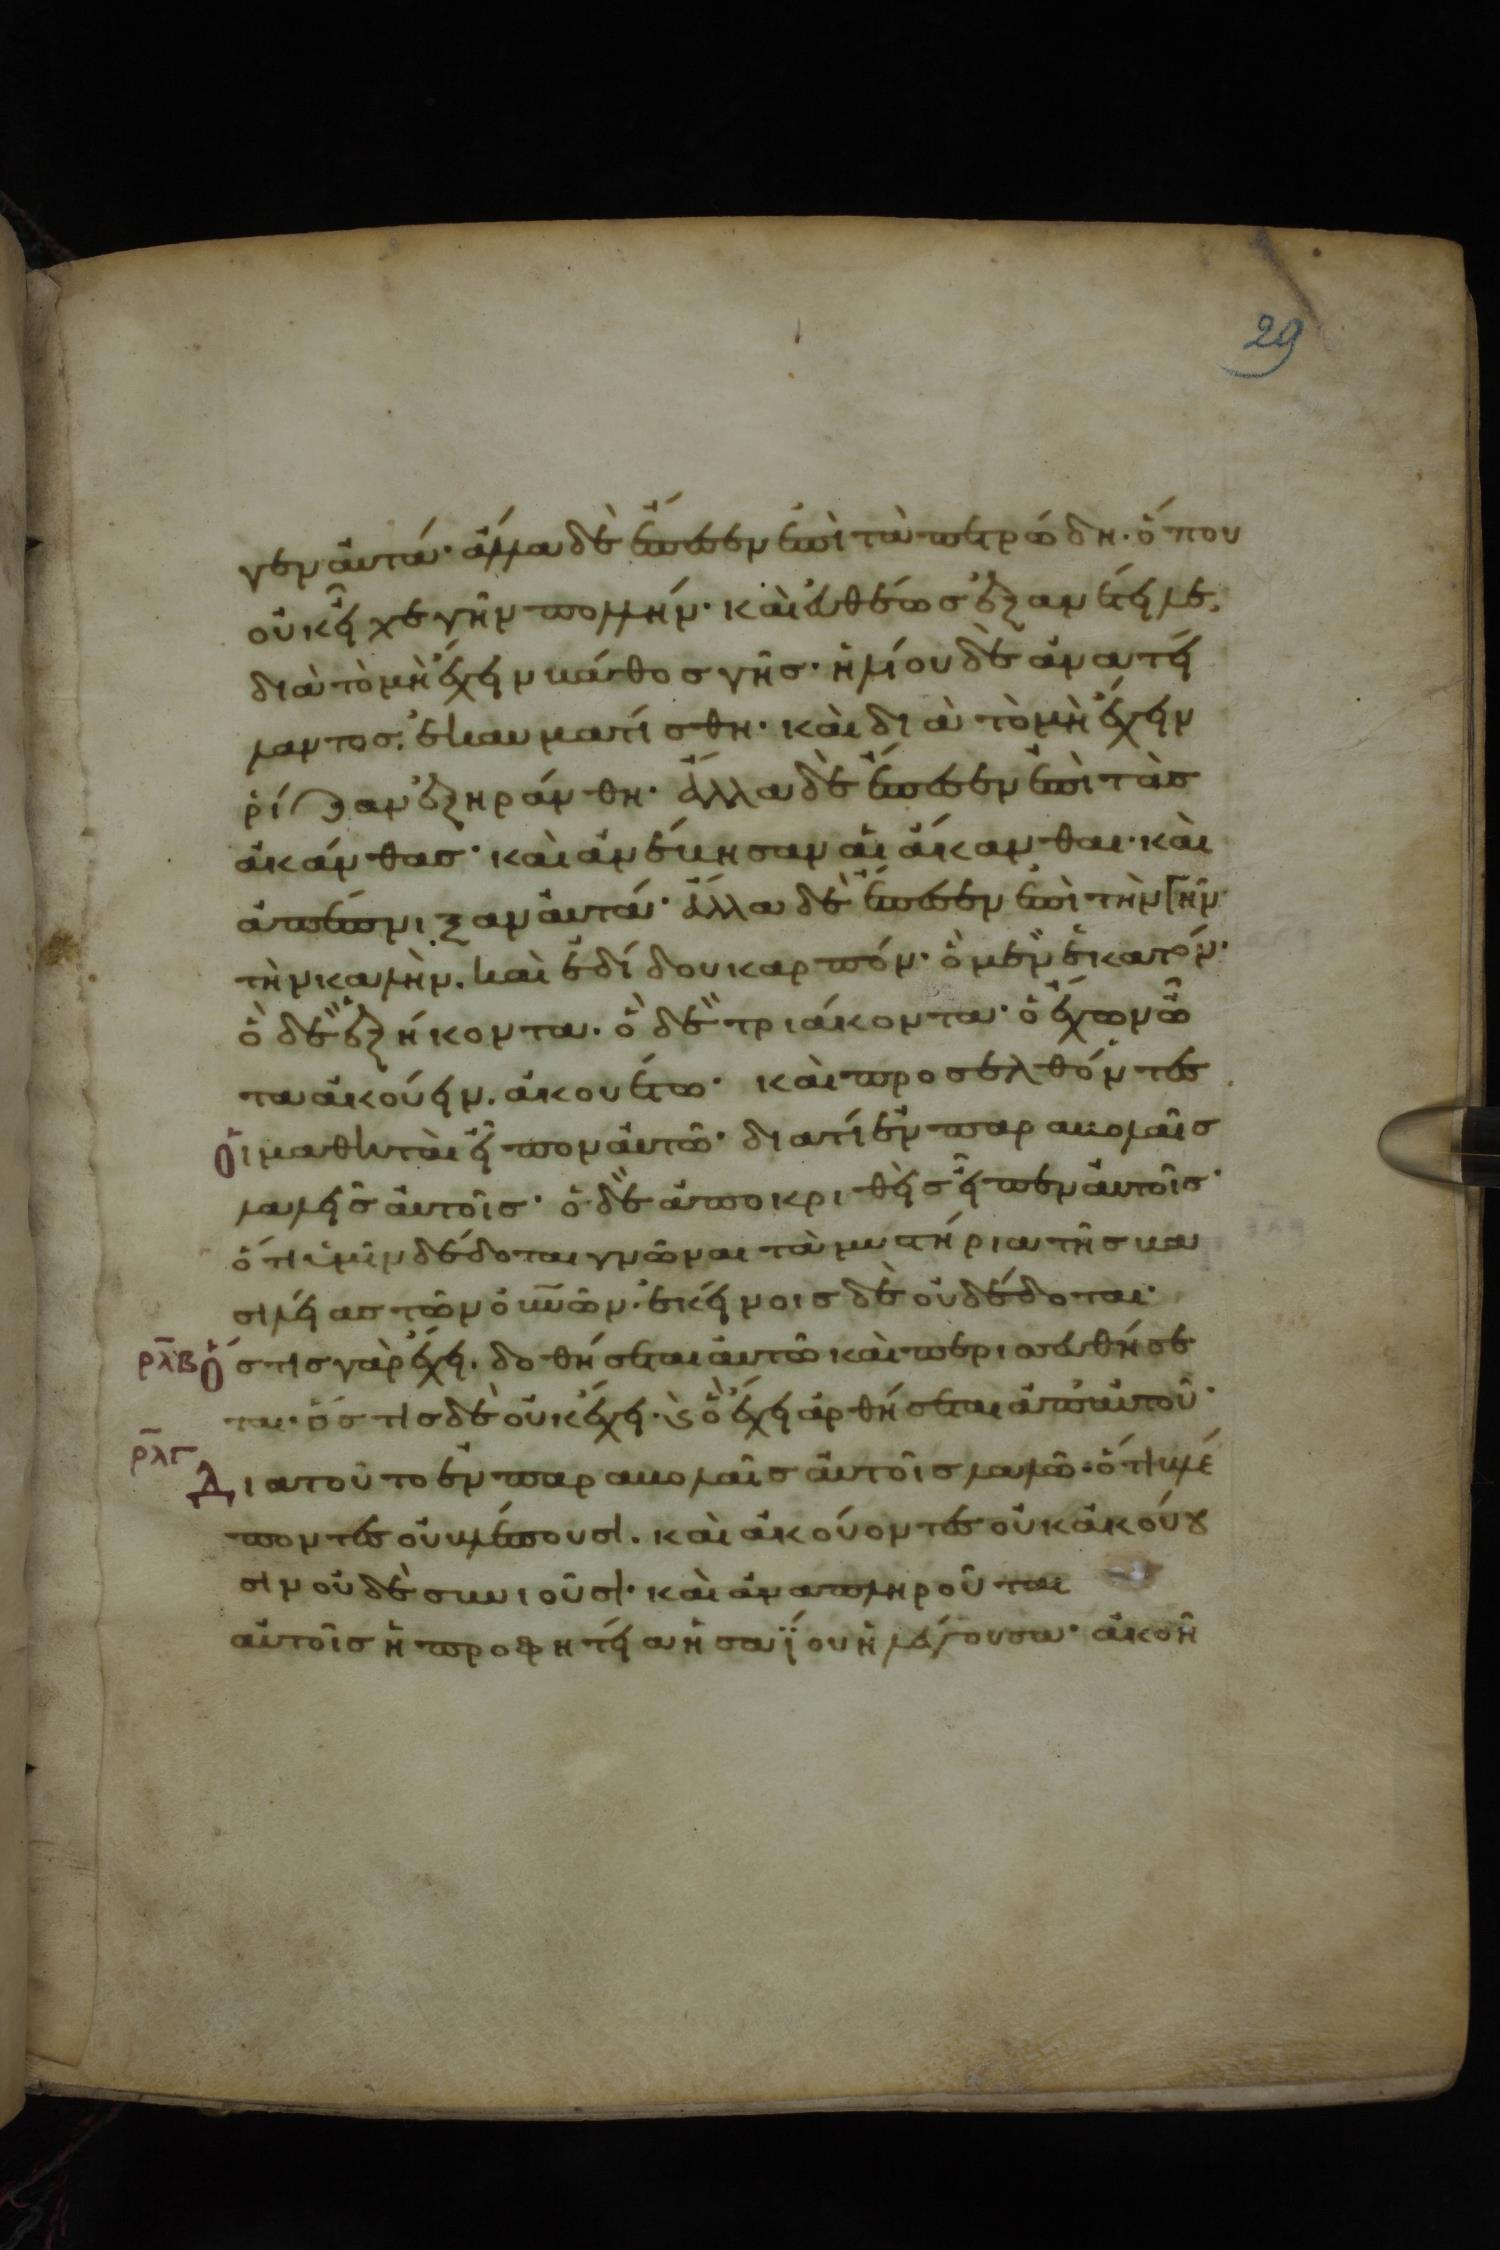 29
γεν αὐτά· ἄλλα δὲ ἔπεσεν ἐπὶ τὰ πετρώδη· ὅπου
οὐκ εἶχε γῆν πολλήν· καὶ εὐθέως ἐξανέτειλε.
διὰ τὸ μὴ ἔχειν βάθος γῆς· ἡλίου δὲ ἀνατεί
λαντος. ἐκαυματίσθη· καὶ διὰ τὸ μὴ ἔχειν
ῥίζαν ἐξηράνθη· ἄλλα δὲ ἔπεσεν ἐπὶ τὰς
ἀκάνθας· καὶ ἀνέβησαν αἱ ἄκανθαι· καὶ
ἀπέπνιξαν αὐτά· ἄλλα δὲ ἔπεσεν ἐπὶ τὴν γῆν
τὴν καλὴν. καὶ ἐδίδου καρπόν· ὃ μὲν ἑκατόν·
ὃ δὲ ἑξήκοντα. ὃ δὲ τριάκοντα· ὁ ἔχων ὦ
τα ἀκούειν. ἀκουέτω· καὶ προσελθόντες
οἱ μαθηταὶ εἶπον αὐτῶ· διατί ἐν παραβολαῖς
λαλεῖς αὐτοῖς· ὁ δὲ ἀποκριθεὶς εἶπεν αὐτοῖς·
ὅτι ὑμῖν δέδοται γνῶναι τὰ μυστήρια τῆς βα
σιλείας τῶν οὐνῶν· ἐκείνοις δὲ οὐ δέδοται·
ρλβ ὅστις γὰρ ἔχει. δοθήσεται αὐτῶ καὶ περισευθήσε
ται· ὅστις δὲ οὐκ ἔχει· ϗ ὃ ἔχει ἀρθήσεται ἀπ' αὐτοῦ·
ρλγ
Διατοῦτο ἐν παραβολαῖς αὐτοῖς λαλῶ· ὅτι βλέ
ποντες οὐ βλέπουσι. καὶ ἀκούοντες οὐκ ἀκούου
σιν οὐδὲ συνιοῦσι· καὶ ἀναπληροῦται
αὐτοῖς ἡ προφητεία ἡσαΐου ἡ λέγουσα· ἀκοῆ